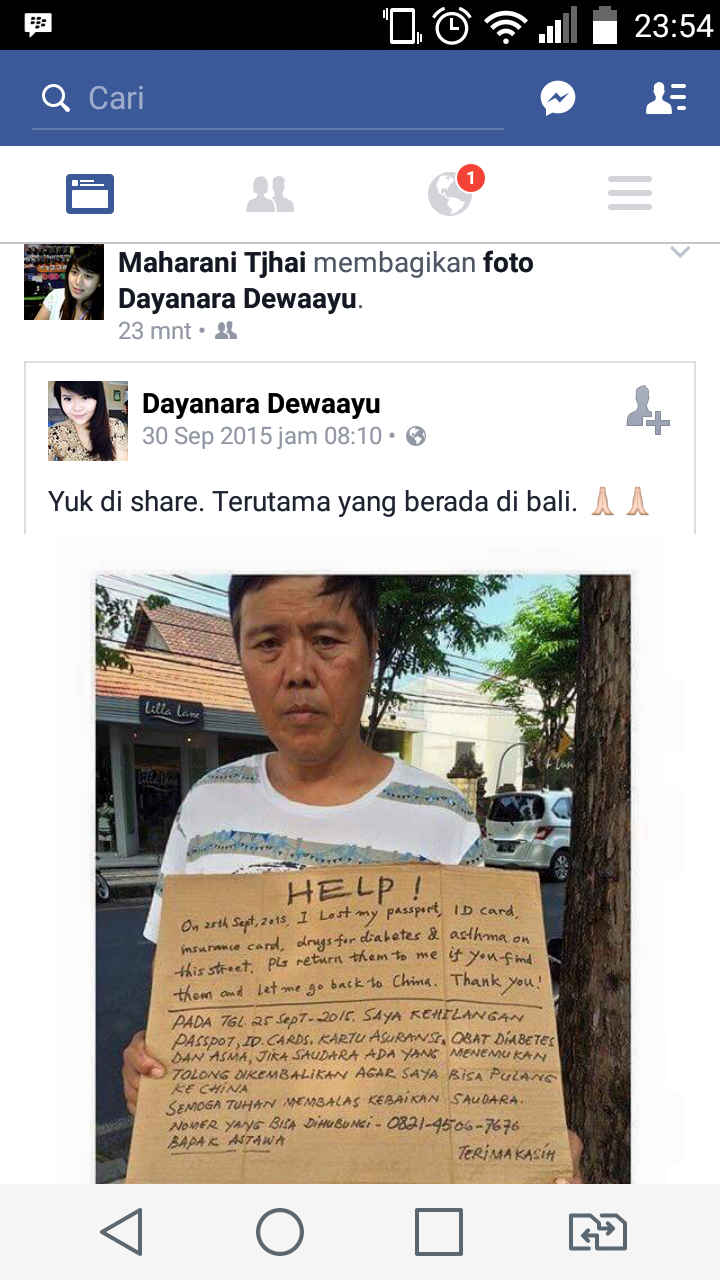 23:54
Cari
1
Maharani Tjhai membagikan foto
Dayanara Dewaayu.
23 mnt •
Dayanara Dewaayu
30 Sep 2015 jam 08:10 •
Yuk di share. Terutama yang berada di bali. 🙏🙏
Lilla Lane
HELP!
On 25th Sept, 2015, I Lost my passport, ID card,
insurance card, drugs for diabetes & asthma on
this street. Pls return them to me if you find
them and let me go back to China. Thank you!
PADA TGL. 25 SEPT-2015. SAYA KEHILANGAN
PASSPOT, ID. CARDS, KARTU ASURANSI, OBAT DIABETES
DAN ASMA, JIKA SAUDARA ADA YANG MENEMUKAN
TOLONG DIKEMBALIKAN AGAR SAYA BISA PULANG
KE CHINA
SEMOGA TUHAN MEMBALAS KEBAIKAN SAUDARA.
NOMER YANG BISA DIHUBUNGI - 0821-4506-7676
BAPAK ASTAWA
TERIMAKASIH